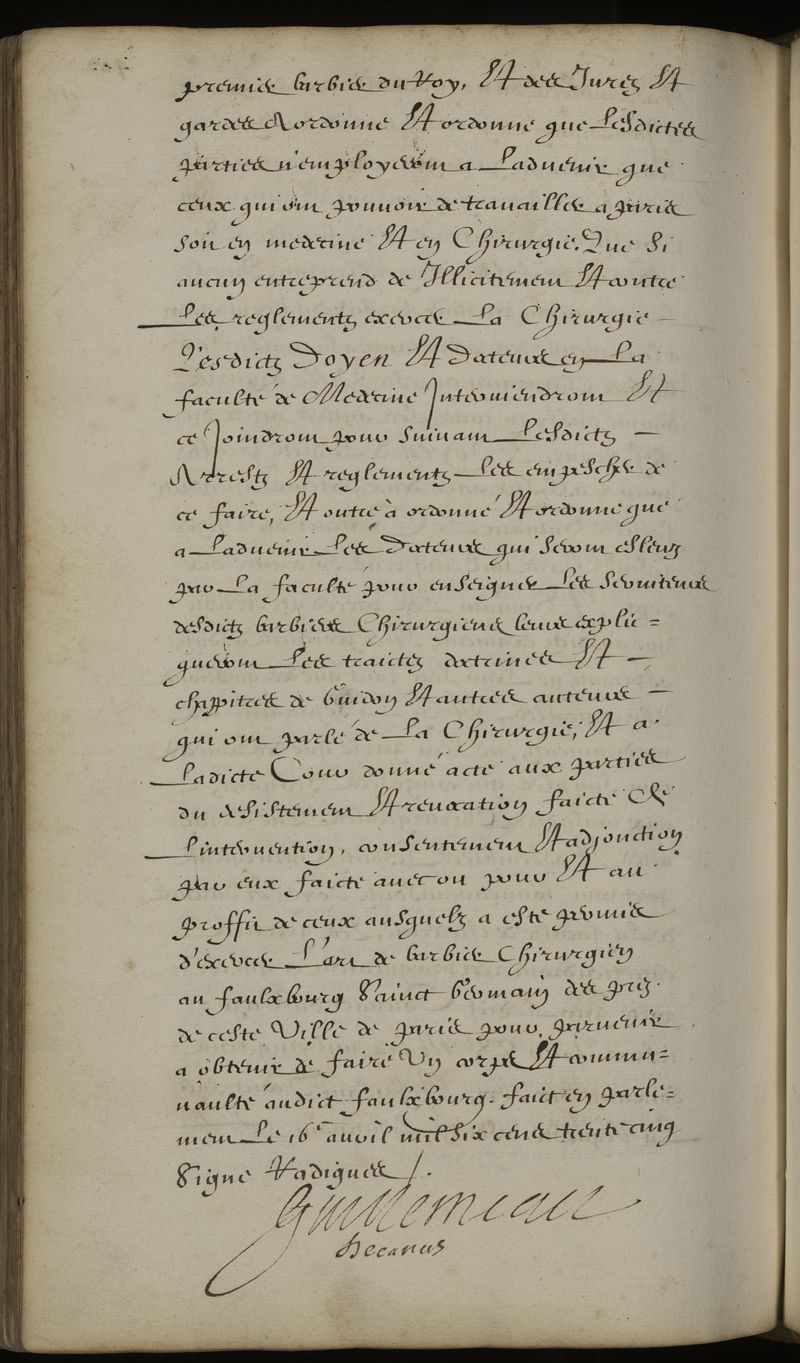 premier barbier du Roy, Et des Jurez Et
gardes A ordonné Et ordonne que Lesdictes
parties n'employeront a Ladvenir que
ceux qui ont pouvoir de travailler a paris
soit en medecine Et en Chirurgie. Que si
aucun entreprend de Illicitement Et contre
Les reglementz exercer La Chirurgie
Lesdictz Doyen Et Docteurs en La
faculté de Medecine Interviendront Et
ce Joindront pour suivant Lesdictz
Arrestz Et reglementz Les empescher de
ce faire, Et outre à ordonné Et ordonne que
a Ladvenir Les Docteurs qui seront esleuz
par La faculté pour enseigner Les serviteurs
desdictz barbiers Chirurgiens leurs expli=
queront Les traictez doctrines Et
chappitres de Guidon Et autres auteurs
qui ont parlé de La Chirurgie, Et a
Ladicte Cour donné acte aux parties
du desistement Et revocation faicte de
L'intervention, consentement Et adjonction
par eux faicte avec ou pour Et au
proffit de ceux ausquelz a esté promis
d'exercer L'art de barbier Chirurgien
au faulxbourg Sainct Germain des prez
de ceste Ville de paris pour parvenir
a obtenir de faire Un corps Et commu=
naulté audict faulxbourg. faict en parle=
ment Le 16e avril mil six cens trente cinq
Signé Radigues
Guillemeau
Decanus